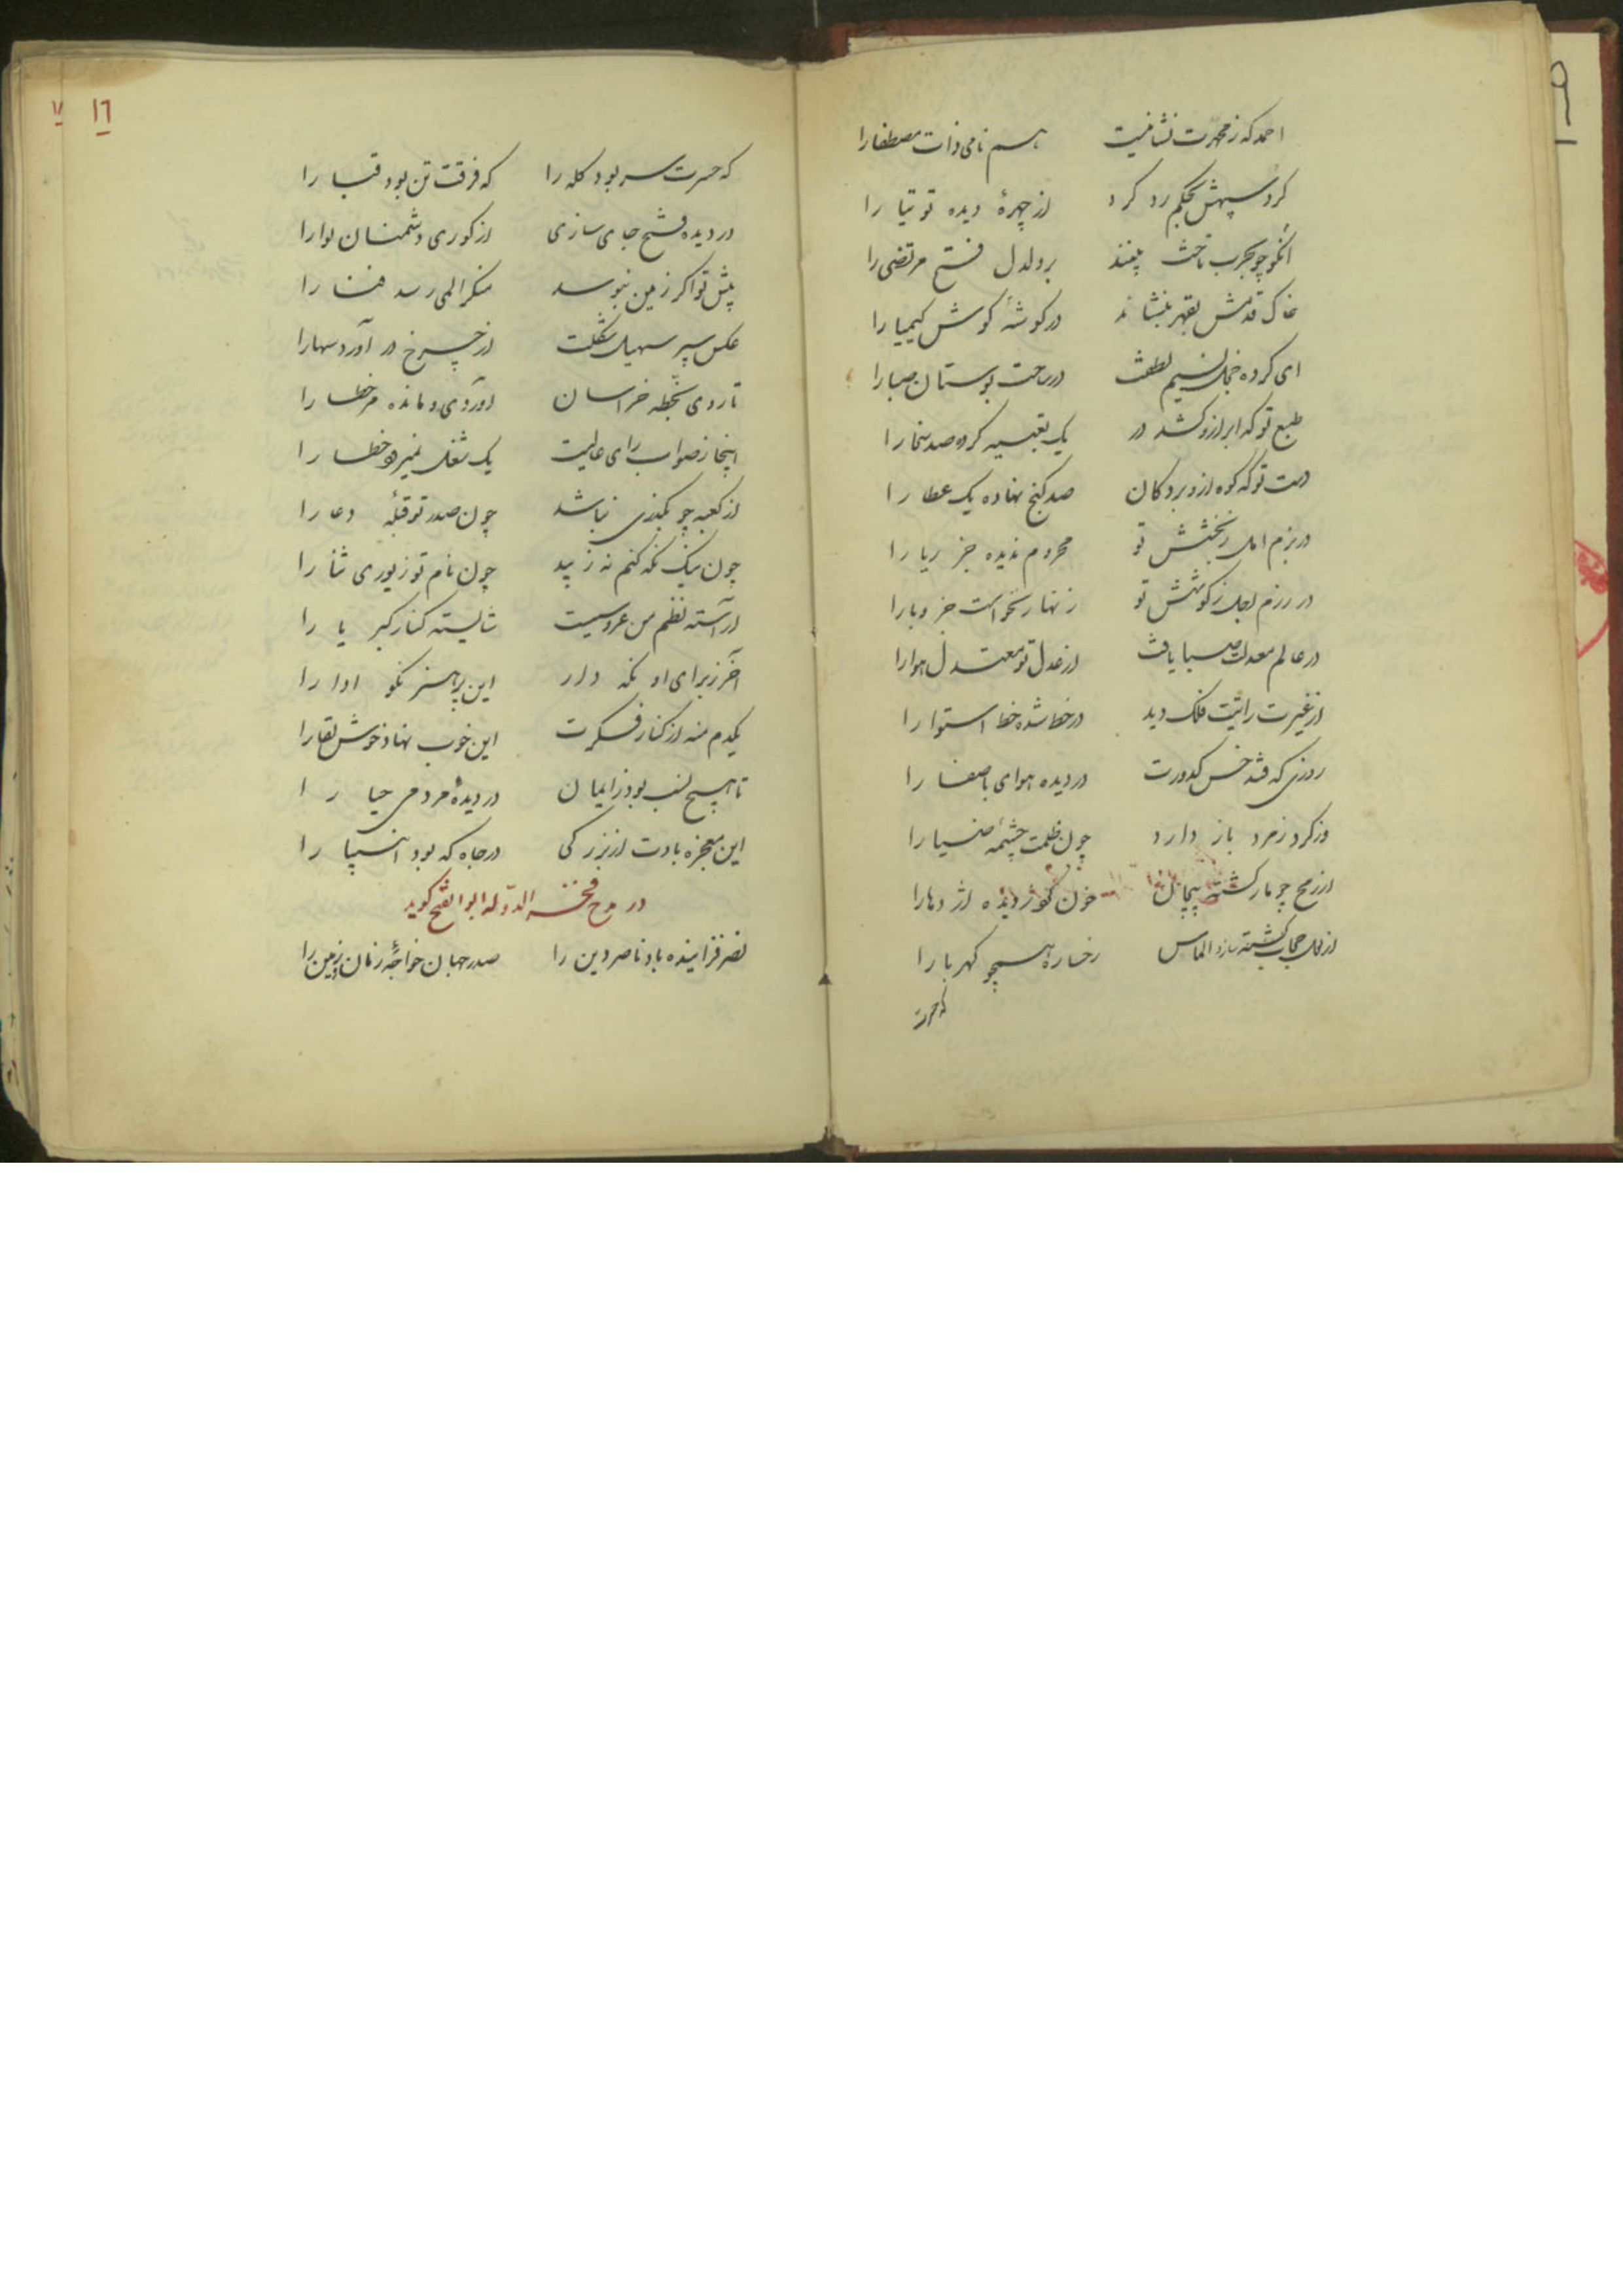 احمد که ز محمدت نشانیست هم نامی ذات مصطفا را
کرد سپهش بحکم رد کرد از چهرهٔ دیده توتیا را
آنکو چو بحرب تاخت بیند بر دلدل فتح مرتضی را
خاک قدمش بقهر بنشاند در گوشهٔ گوش کیمیا را
ای کرده خجل نسیم لطفت در ساحت بوستان صبا را
طبع تو که ابر ازو کشد در یک تعبیه کرده صد سخا را
دست تو که کوه ازو برد کان صد گنج نهاده یک عطا را
در بزم امل ز بخشش تو محروم ندیده جز ریا را
در رزم اجل ز کوشش تو زنهار نخواست جز وبا را
در عالم معدلت صبا یافت از عدل تو معتدل هوا را
از غیرت رایتت فلک دید در خط شده خط استوا را
روزی که فتد خس کدورت در دیده هوای با صفا را
وز کرد ز مرد باز دارد چون ظلمت چشمه ضیا را
از رمح چو مار کشته پیچان خون کور دیده اژدها را
از لعل حجاب کشته سازد الماس رخساره همچو کهربا را
که حسرت
١٦
١٧
که حسرت سر بود کله را که فرقت تن بود قبا را
در دیده فتح جای سازی از کوری دشمنان لوا را
پیش تو اگر زمین نبوسد منکر المی رسد فنا را
عکس سپر سهیل شکلت از چرخ در آورد سها را
تا روی بخطه خراسان آوردی و مانده مر خطا را
اینجا ز صواب رای عالیت یک شغل نمیرود خطا را
از کعبه چو بگذری نباشد چون صدر تو قبله دعا را
چون نیک نگه کنم نه زیبد چون نام تو زیوری ثنا را
آراسته نظم من عروسیست شایسته کنار کبریا را
آخر ز برای او نگه دار این پر هنر نکو ادا را
یکدم منه از کنار فکرت این خوب نهاد خوش لقا را
تا هیچ نسب بود ز ایمان در دیدهٔ مردمی حیا را
این معجزه بادت از بزرگی در جاه که بود انبیا را
در مدح فخر الدوله ابو الفتح گوید
نصر فزاینده باد ناصر دین را صدر جهان خواجهٔ زمان و زمین را